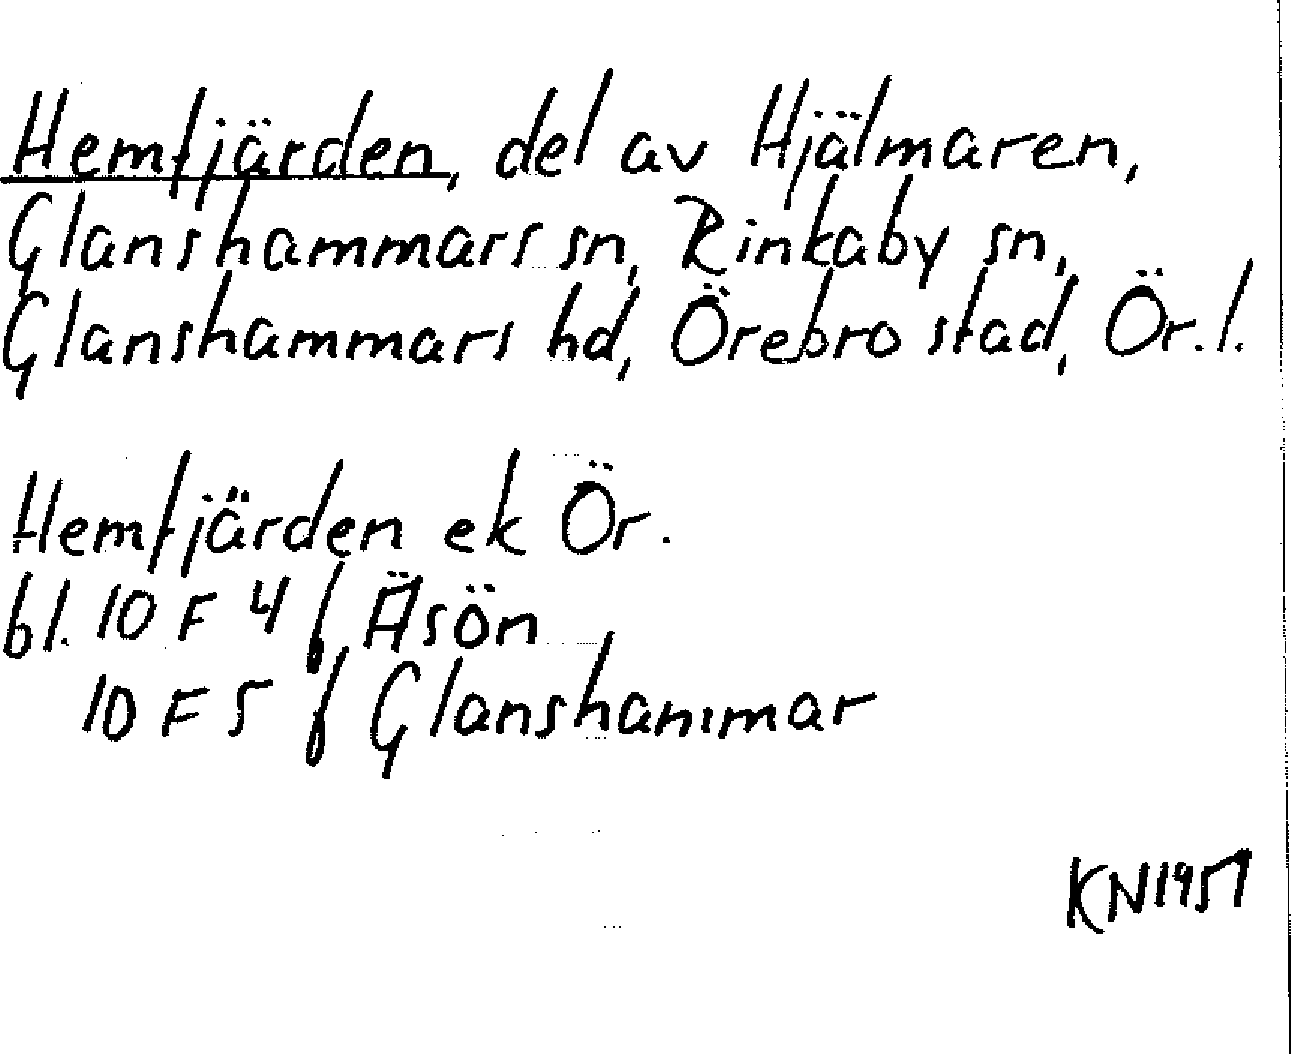 Hemfjärden, del av Hjälmaren,
Glanshammars sn, Rinkaby sn,
Glanshammars hd, Örebro stad, Ör. l.
Hemfjärden ek Ör.
bl. 10 F 4 f Äsön
10 F 5 f Glanshammar
KN 1957